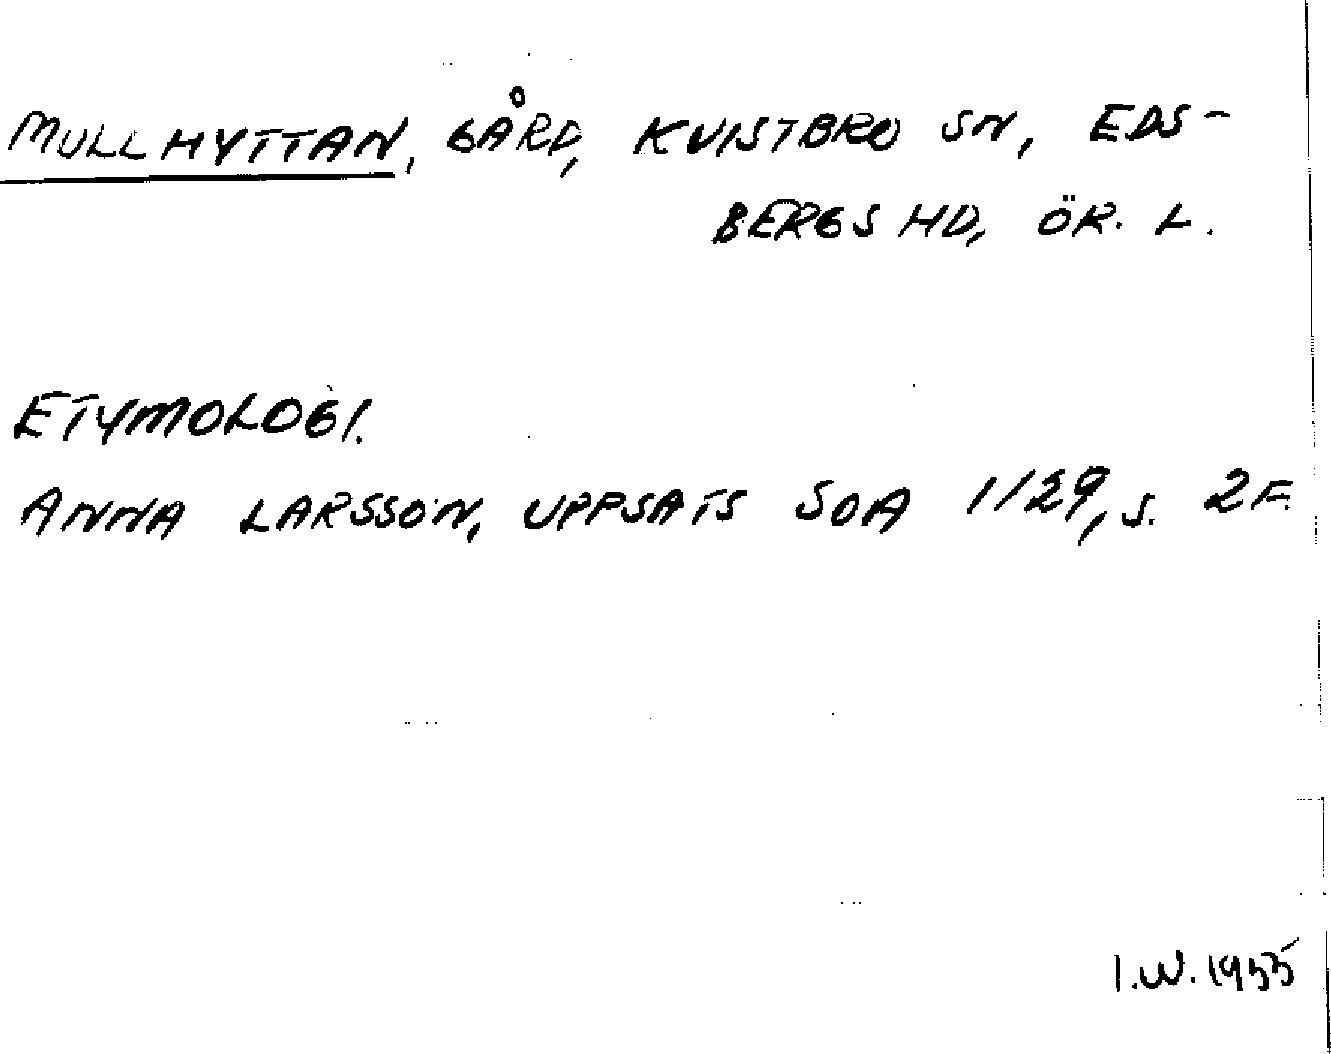 MULLHYTTAN, GÅRD, KVISTBRO SN, EDS-
BERGS HD, ÖR. L.
ETYMOLOGI.
ANNA LARSSON, UPPSATS SOA 1/29, S. 2F.
I.W. 1955